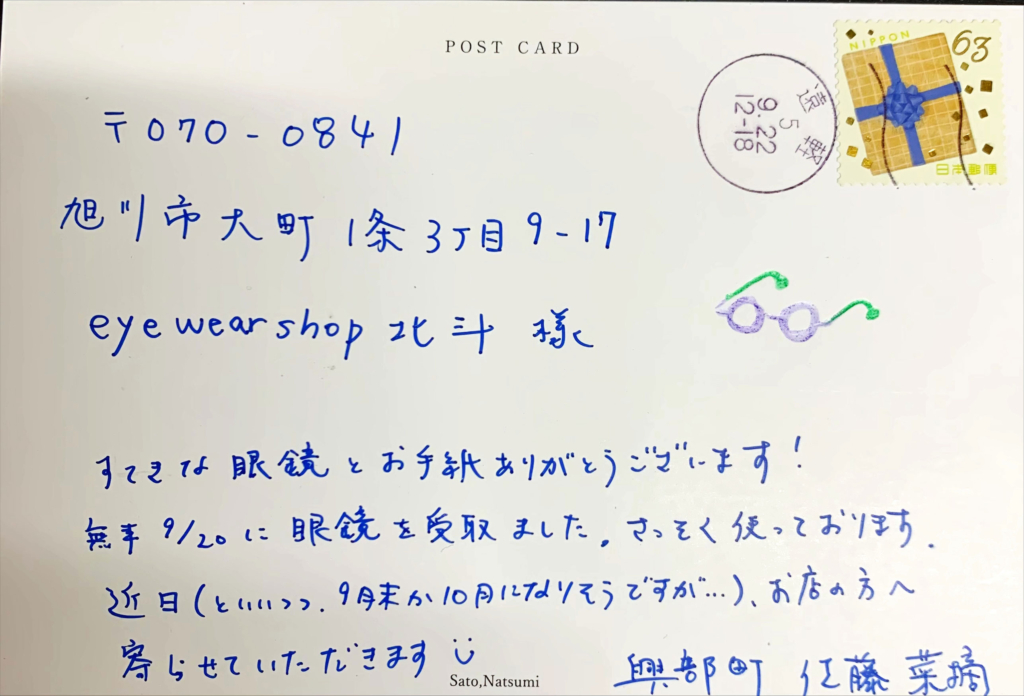 POST CARD
NIPPON 63
日本郵便
遠軽
5
9.22
12-18
〒070-0841
旭川市大町1条3丁目9-17
eyewearshop 北斗 様
すてきな眼鏡とお手紙ありがとうございます!
無事9/20に眼鏡を受取ました。さっそく使っております.
近日(といいつつ、9月末か10月になりそうですが…)、お店の方へ
寄らせていただきます
興部町 佐藤菜摘
Sato,Natsumi